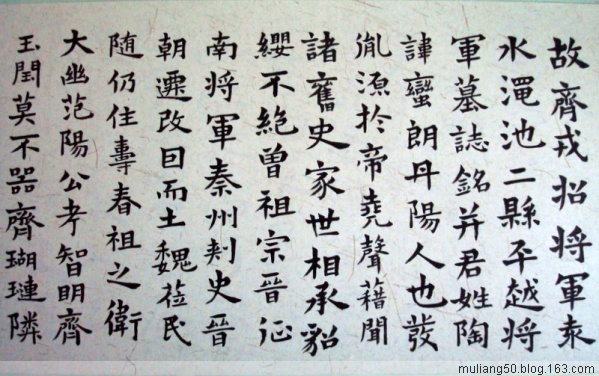 故齊戎招將軍
水澠池二縣平越將
軍墓誌銘并君姓陶
諱蠻朗丹陽人也發
胤源於帝堯聲藉聞
諸舊史家世相承貂
纓不絶曾祖宗晉征
南将軍秦州刾史晉
朝遷改曰而土魏莅民
随仍住壽春祖之衛
大幽范陽公考智明齊
玉閏莫不器齊瑚璉隣
muliang50.blog.163.com